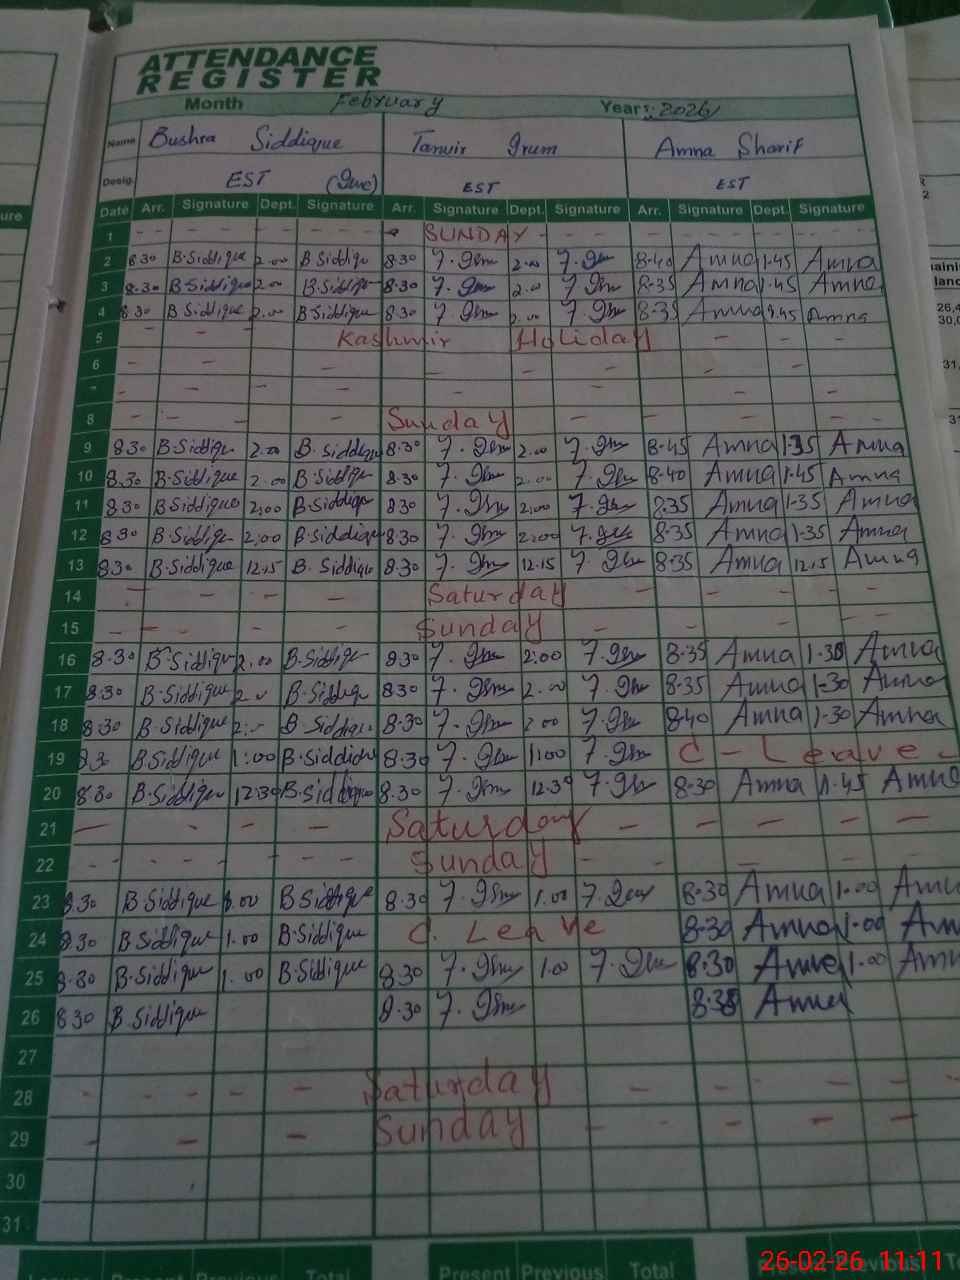 ATTENDANCE
REGISTER
Month February Year: 2026
Name Bushra Siddique Tanvir Irum Amna Sharif
Desig. EST EST EST
Date Arr. Signature Dept. Signature Arr. Signature Dept. Signature Arr. Signature Dept. Signature
1 SUNDAY
2 8.30 B.Siddique 2.00 B.Siddique 8.30 2.00 8.40 Amna 1.45 Amna
3 8.30 B.Siddique 2.00 B.Siddique 8.30 2.00 8.35 Amna 1.45 Amna
4 8.30 B.Siddique 2.00 B.Siddique 8.30 2.00 8.35 Amna 1.45 Amna
5 Kashmir Holiday
6
8 Sunday
9 8.30 B.Siddique 2.00 B.Siddique 8.30 2.00 8.45 Amna 1.35 Amna
10 8.30 B.Siddique 2.00 B.Siddique 8.30 2.00 8.40 Amna 1.45 Amna
11 8.30 B.Siddique 2:00 B.Siddique 8.30 2:00 8.35 Amna 1.35 Amna
12 8.30 B.Siddique 2:00 B.Siddique 8.30 2:00 8.35 Amna 1.35 Amna
13 8.30 B.Siddique 12.15 B.Siddique 8.30 12.15 8.35 Amna 12.15 Amna
14 Saturday
15 Sunday
16 8.30 B.Siddique 2.00 B.Siddique 8.30 2:00 8.35 Amna Amna
17 8.30 B.Siddique B.Siddique 8.30 2.00 8.35 Amna 1.30 Amna
18 8.30 B.Siddique B.Siddique 8.30 2.00 8.40 Amna 1.30 Amna
19 B.Siddique 1:00 B.Siddique 8.30 1:00 C-Leave
20 8.30 B.Siddique 12.30 B.Siddique 8.30 12.30 8.30 Amna 1.45 Amna
21 Saturday
22 Sunday
23 8.30 B.Siddique 1.00 B.Siddique 8.30 1.00 8.30 Amna 1.00
24 8.30 B.Siddique 1.00 B.Siddique C. Leave 8.30 Amna 1.00
25 8.30 B.Siddique 1.00 B.Siddique 8.30 1.00 8.30 Amna 1.00
26 8.30 B.Siddique 8.30 Amna
27
28 Saturday
29 Sunday
30
31
Present Previous Total Present Previous Total Present
26-02-26 11:11